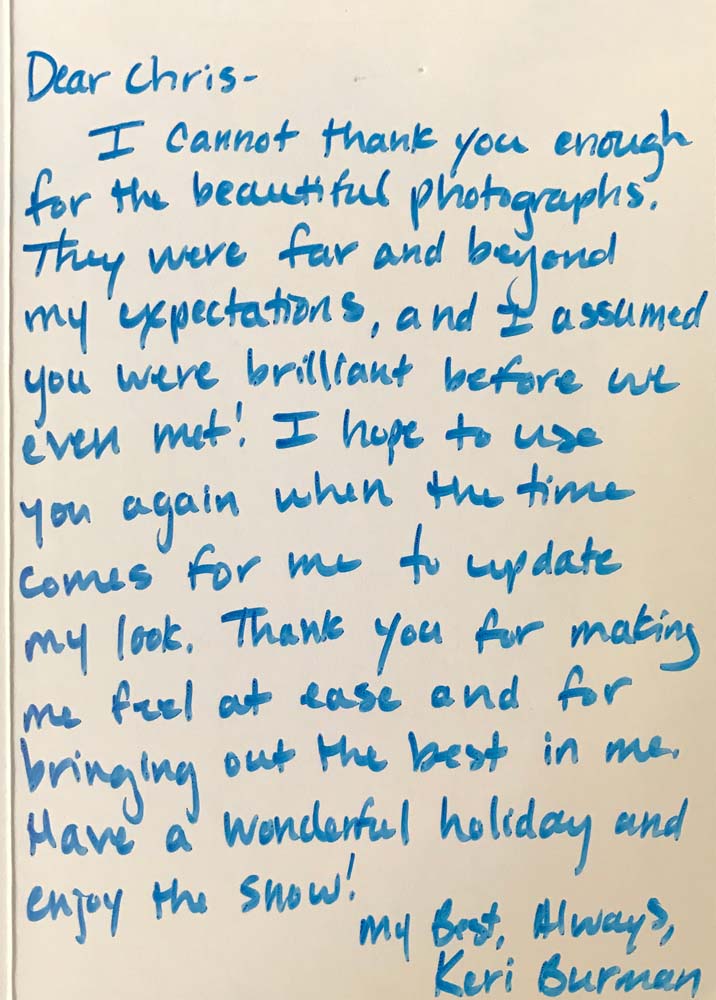 Dear Chris-
I cannot thank you enough
for the beautiful photographs.
They were far and beyond
my expectations, and I assumed
you were brilliant before we
even met! I hope to use
you again when the time
comes for me to update
my look. Thank you for making
me feel at ease and for
bringing out the best in me.
Have a wonderful holiday and
enjoy the snow!
My Best, Always,
Keri Burman